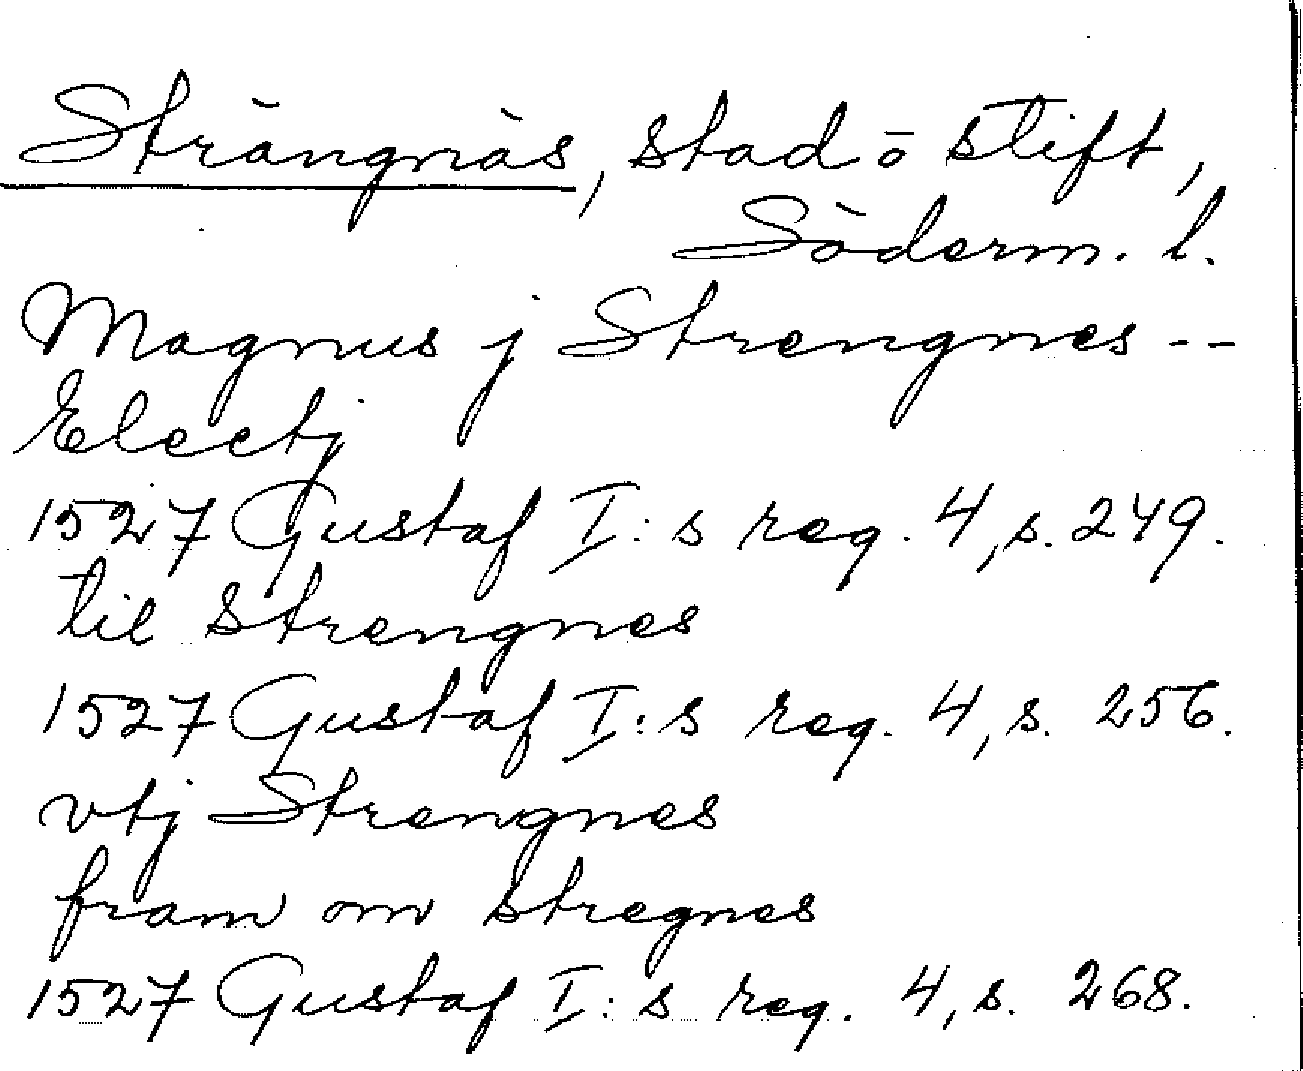 Strängnäs, stad ö stift,
Söderm. l.
Magnus j Strengnes --
Electj
1527 Gustaf I:s reg. 4, s. 249.
til strengnes
1527 Gustaf I:s reg. 4, s. 256.
vtj Strengnes
fram om stregnes
1527 Gustaf I:s reg. 4, s. 268.